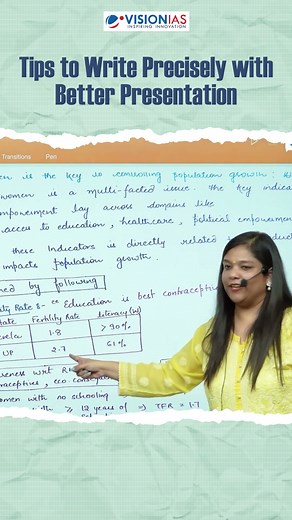 VISIONIAS
INSPIRING INNOVATION
Tips to Write Precisely with
Better Presentation
Transitions Pen
en is the key is controlling population growth :
women is a multi-facted issue. The key indica
mpowerment lay across domains like
access to education, healthcare, political empowerment
these Indicators is directly related
impacts population growth.
ned by following
ity Rate :- "Education is best contraceptiv
tate Fertility Rate Literacy (W)
erela 1.8 > 90%
UP 2.7 61%
reness wrt R
raceptives, eco.
omen with no schooling
≥ 12 years of ⇒ TFR = 1.7